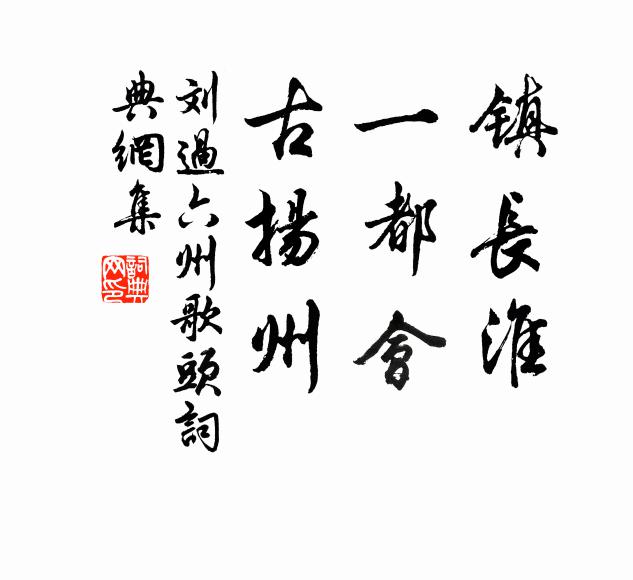 镇長淮
一都會
古揚州
刘過六州歌頭詞
典網集
詞典
网印